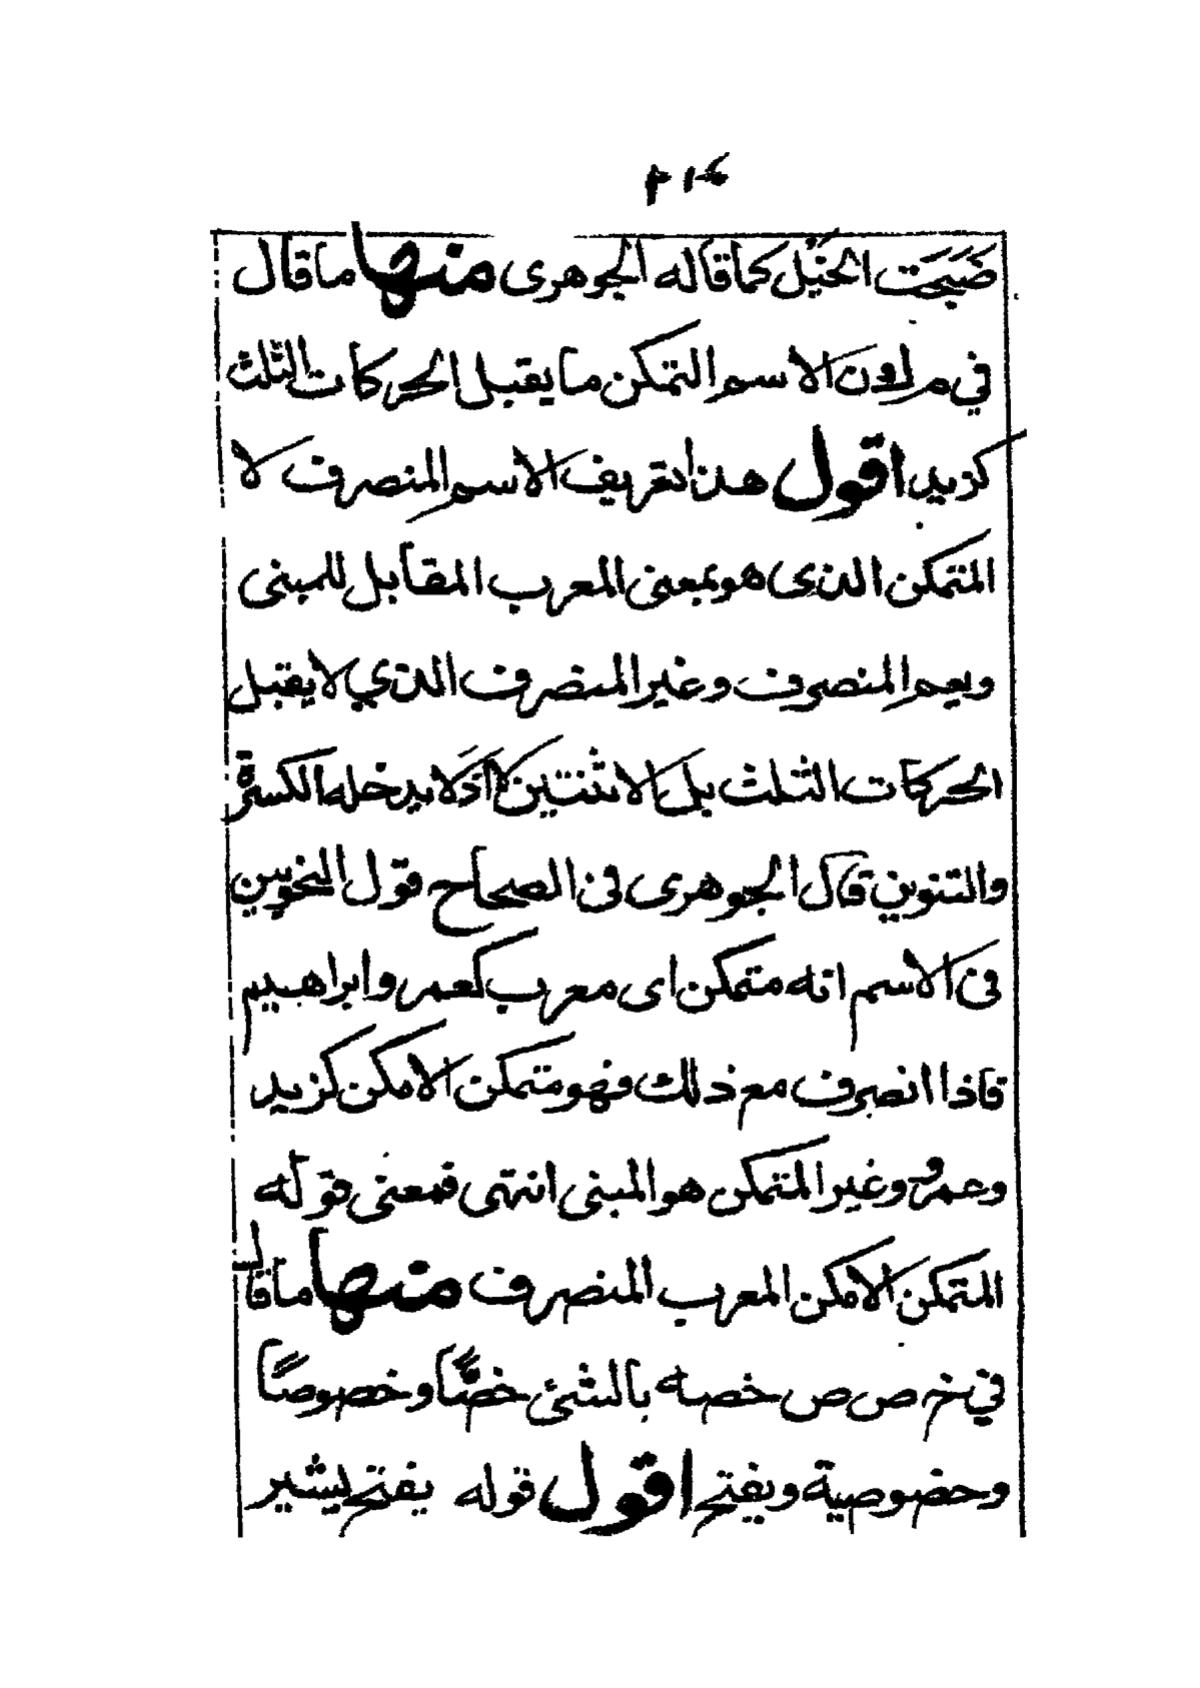 ضَبَحَت الخَيْل كما قاله الجوهرى منها ما قال
في م ك ن الاسم المتمكن ما يقبل الحركات الثلث
كزيد اقول هذا تعريف الاسم المنصرف لا
المتمكن الذى هو بمعنى المعرب المقابل للمبنى
ويعم المنصرف وغير المنصرف الذي لا يقبل
الحركات الثلث بل الاثنتين اذ لا يدخله الكسرة
والتنوين قال الجوهرى فى الصحاح قول النحويين
فى الاسم انه متمكن اى معرب كعمر وابراهيم
فاذا انصرف مع ذلك فهو متمكن الامكن كزيد
وعمرو وغير المتمكن هو المبنى انتهى فمعنى قوله
المتمكن الامكن المعرب المنصرف منها ما قال
في خ ص ص خصه بالشئ خصًّا وخصوصًا
وخصوصية ويفتح اقول قوله يفتح يشير